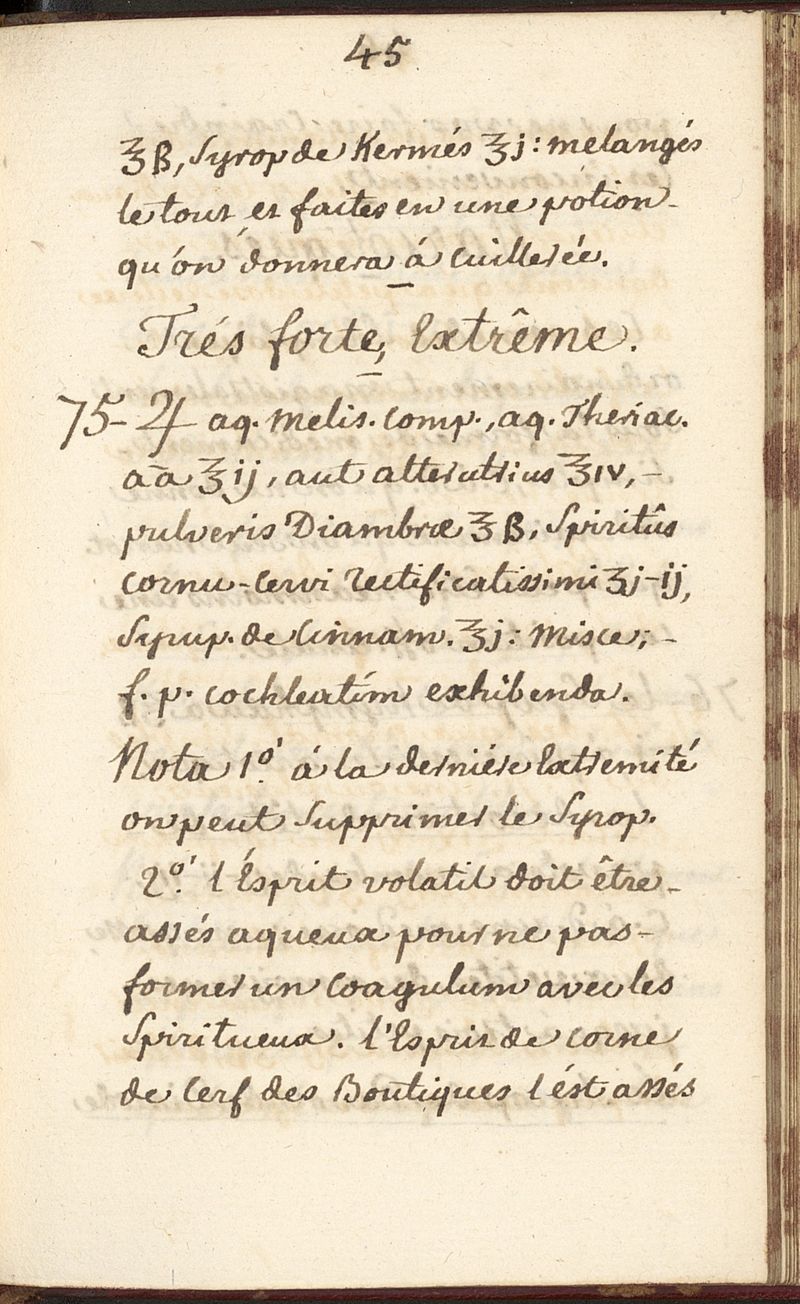 45
℥ß, Syrop de Kermés ℥j: melangés
le tout et faites en une pôtion
qu'on donnera á cuillerée.
Trés forte, Extrême.
75- ♃ aq. Melis. comp., aq. Theriac.
āa ℥ij, aut alterutrius ℥iv, -
pulveris Diambræ ʒß, Spiritûs
cornu-cervi rectificatissimi ʒj-ij,
Syrup. de Cinnam. ℥j: Misce; -
f. p. cochleatím exhibenda.
Nota 1º. á la derniére Extremité
on peut supprimer le Syrop.
2º. l'Ésprit volatil doit être -
assés aqueux pour ne pas -
former un Coagulum avec les
Spiritueux. l'Esprit de corne
de Cerf des Boutiques l'ést assés